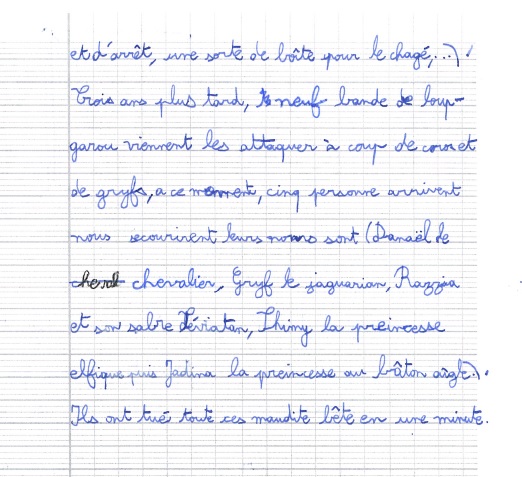 et d'arrêt, une sorte de boîte pour le chagé,...).
Trois ans plus tard, neuf bande de loup-
garou viennent les attaquer à coup de crox et
de gryfs, a ce moment, cinq personne arrivent
nous secourirent leurs noms sont (Danaël le
chevalier, Gryf le jaguarian, Razzia
et son sabre Léviatan, Shimy la preincesse
elfique puis Jadina la preincesse au bâton aigle).
Ils ont tué toute ces maudite bête en une minute.